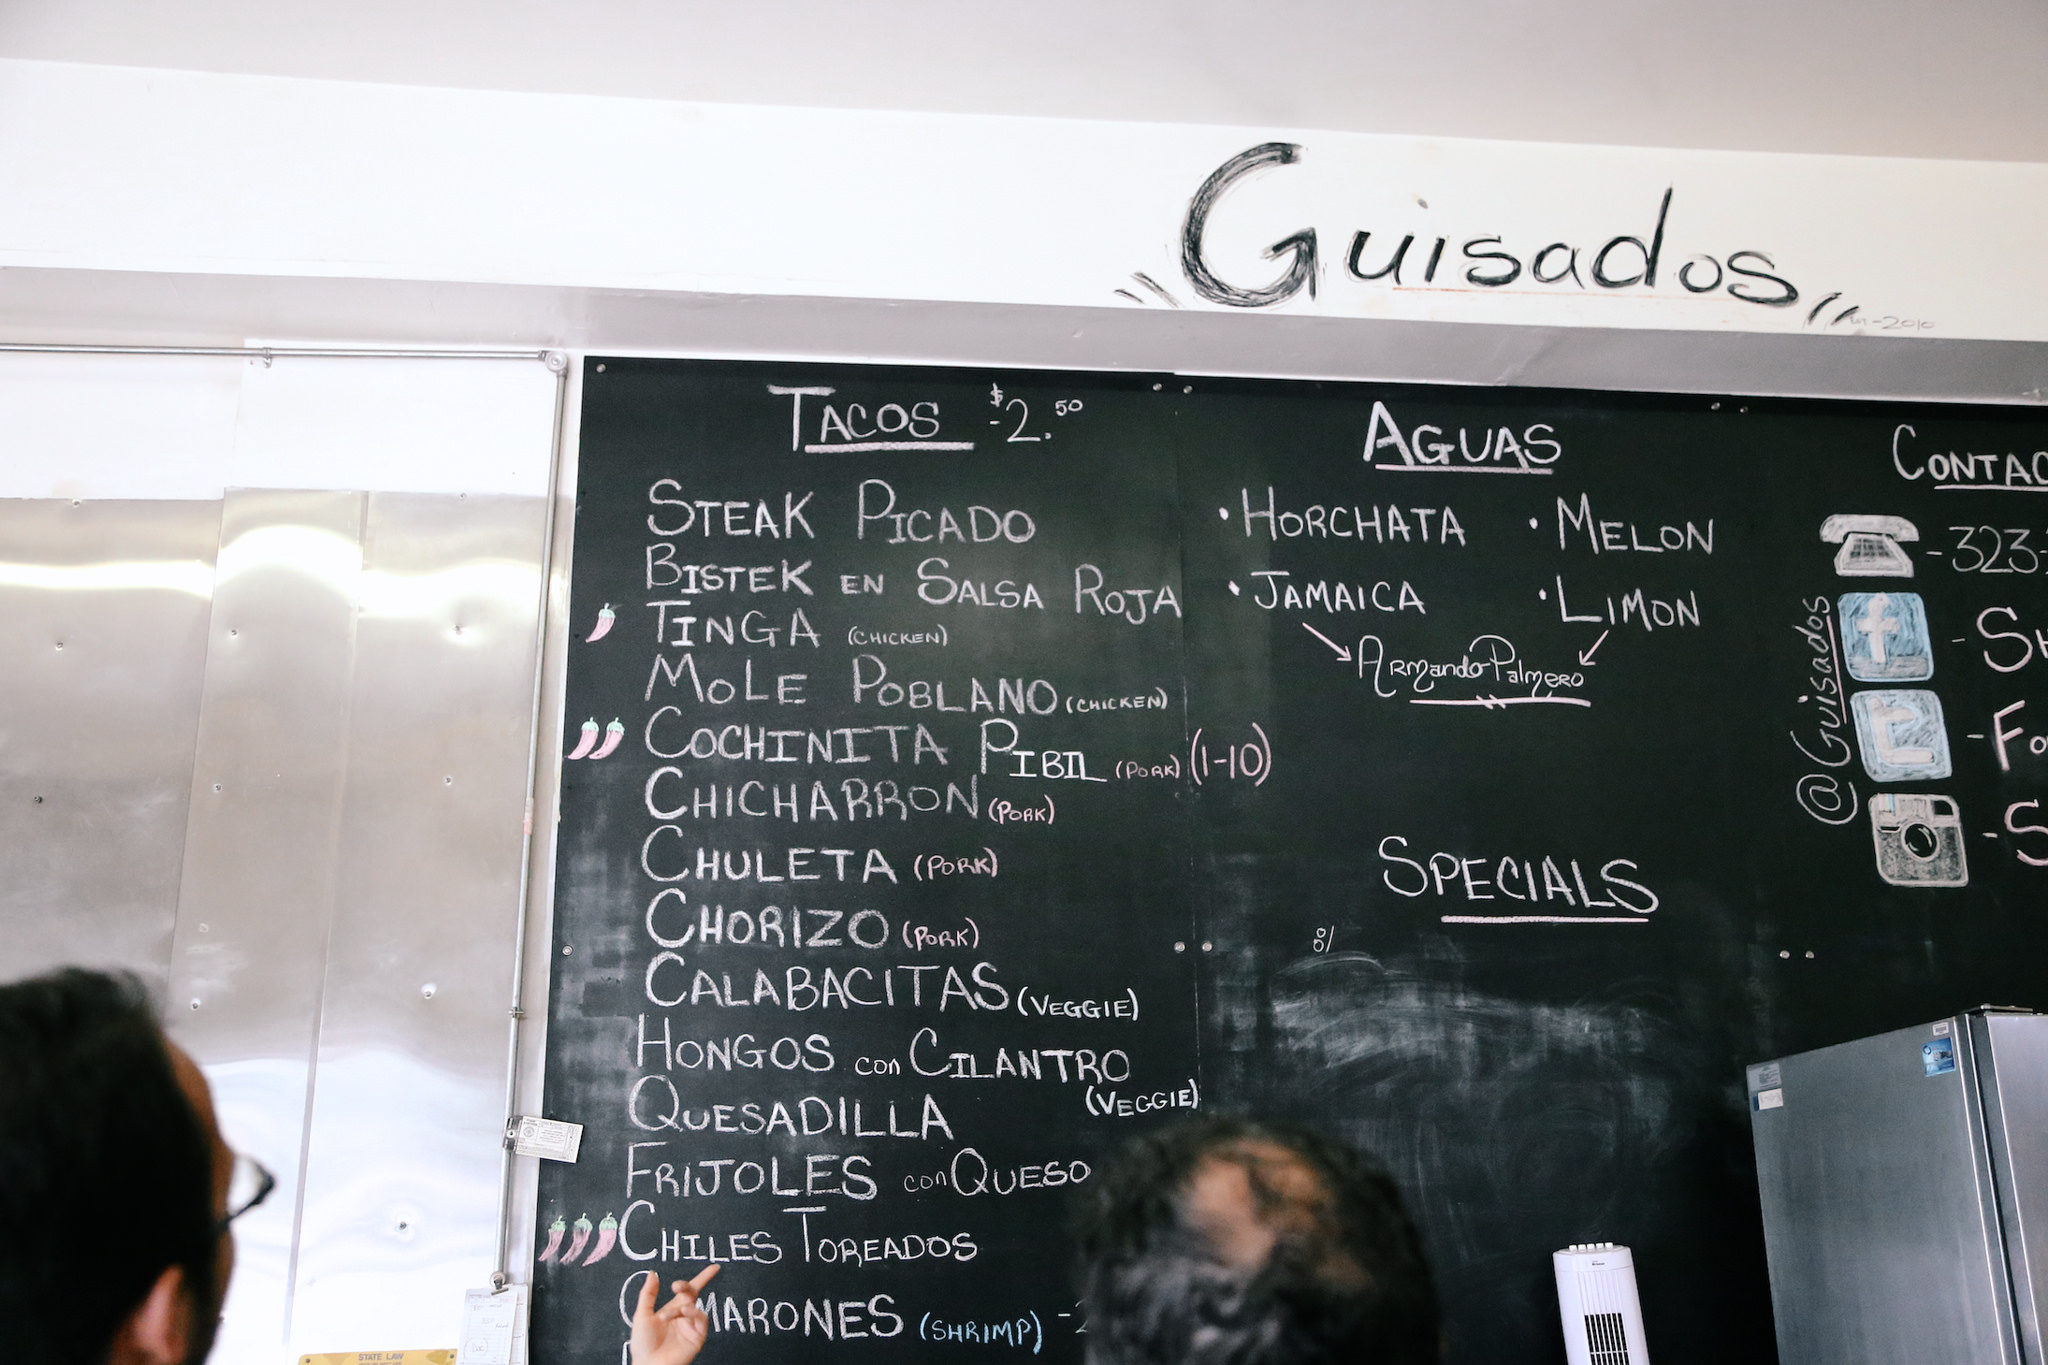 Guisados
-2010
TACOS $2.50
STEAK PICADO
BISTEK EN SALSA ROJA
TINGA (CHICKEN)
MOLE POBLANO (CHICKEN)
COCHINITA PIBIL (PORK) (1-10)
CHICHARRON (PORK)
CHULETA (PORK)
CHORIZO (PORK)
CALABACITAS (VEGGIE)
HONGOS con CILANTRO
(VEGGIE)
QUESADILLA
FRIJOLES con QUESO
CHILES TOREADOS
MARONES (SHRIMP) -2
AGUAS
• HORCHATA • MELON
• JAMAICA • LIMON
ARMando Palmero
SPECIALS
CONTAC
- 323-
@Guisados
f - SH
t - Fo
- S
STATE LAW